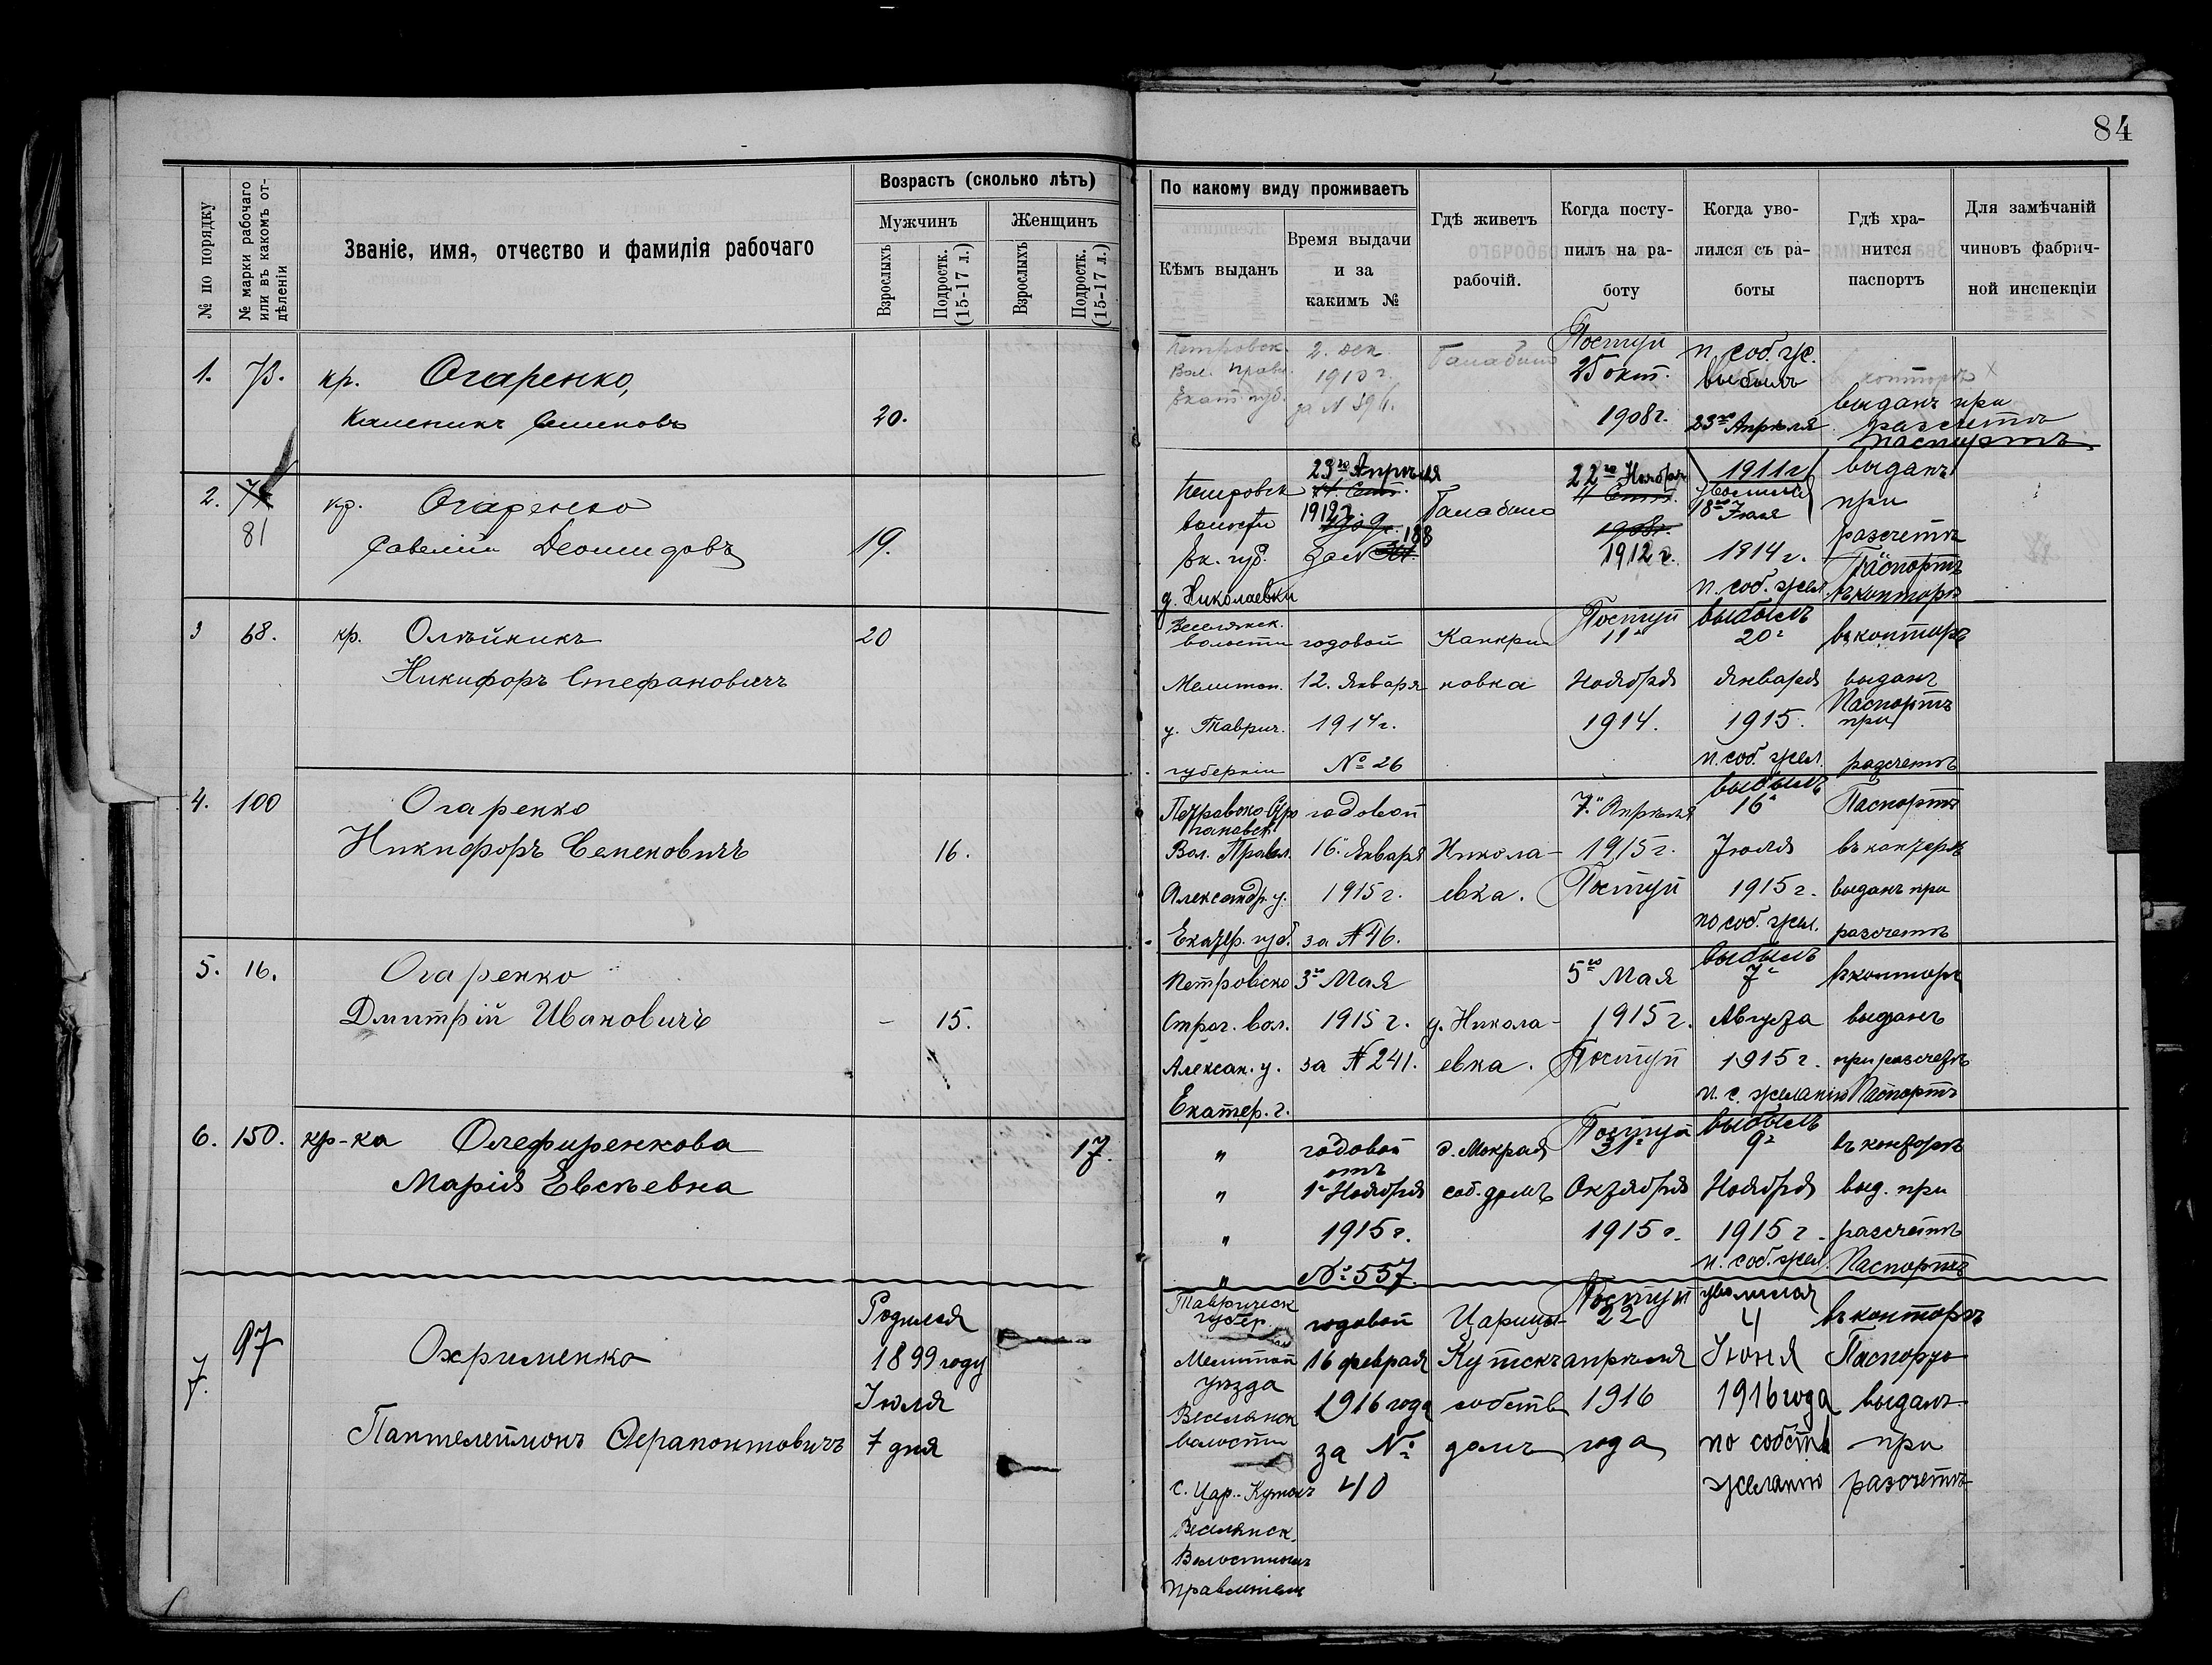 84
№ по порядку
№ марки рабочаго или въ какомъ отдѣленіи
Званіе, имя, отчество и фамилія рабочаго
Возрастъ (сколько лѣтъ)
Мужчинъ
Женщинъ
Взрослыхъ
Подростк. (15-17 л.)
Взрослыхъ
Подростк. (15-17 л.)
По какому виду проживаетъ
Кѣмъ выданъ
Время выдачи и за какимъ №
Гдѣ живетъ рабочій.
Когда поступилъ на работу
Когда уволился съ работы
Гдѣ хранится паспортъ
Для замѣчаній чиновъ фабричной инспекціи
1.
73.
кр. Огаренко,
20.
Петровск.
Вол. Правл.
Екат. губ.
2. Дек.
1910 г.
за N
Поступ
25 окт.
1908 г.
п. соб. ж.
выбылъ
23го Апрѣля
1911 г.
въ конторѣ
выданъ при
разсчетѣ
паспортъ
2.
81
кр. Огаренко
Савелій Деомидовъ
19.
Петровск
волости
Ек. губ.
д. Николаевки
23го Апрѣля
1912 г.
188
за N
22го Ноября
1908г.
1912 г.
Уволился
18го Іюля
1914 г.
п. соб. жел.
выданъ
при
разсчетѣ
Паспортъ
въ конторѣ
3
68.
кр. Олѣйникъ
Никифоръ Стефановичъ
20
Веселянск.
волости
Мелитоп.
у. Таврич.
губерніи
годовой
12. Января
1914 г.
№ 26
Канкри
новка
Поступ
11го
Ноября
1914.
выбылъ
20г
Января
1915.
п. соб. жел.
въ конторѣ
выданъ
Паспортъ
при
разсчетѣ
4.
100
Огаренко
Никифоръ Семеновичъ
16.
Вол. Правл.
Александр. у.
Екатер. губ.
годовой
16. Января
1915 г.
за N 46.
Никола-
евка.
7. Апрѣля
1915 г.
Поступ
выбылъ
16
Іюля
1915 г.
по соб. жел.
Паспортъ
въ конторѣ
выданъ при
разсчетѣ
5.
16.
Огаренко
Дмитрій Ивановичъ
-
15.
Петровско
Строг. вол.
Алексан. у.
Екатер. г.
3го Мая
1915 г.
за N 241.
д. Никола-
евка.
5го Мая
1915 г.
Поступ
выбылъ
7г
Августа
1915 г.
п. с. желанію
въ конторѣ
выданъ
при разсчетѣ
Паспортъ
6.
150.
кр-ка Олефиренкова
Марія Евсѣевна
17.
"
"
"
"
годовой
отъ
1го Ноября
1915 г.
№ 557.
д. Мокрая
соб. домъ
Поступ
31г
Октября
1915 г.
выбылъ
9г
Ноября
1915 г.
п. соб. жел.
въ конторѣ
выд. при
разсчетѣ
Паспортъ
7.
97
Охрименко
Пантелеймонъ Ферапонтовичъ
Родился
1899 году
Іюля
7 дня
Таврическ
губер.
Мелитоп
уѣзда
Веселянск
волости
с. Цар.-Кутъ
Веселянск.
Волостнымъ
Правленіемъ
годовой
16 февраля
1916 года
за №
40
Царицы-
Кутскъ
собств
домъ
Поступ
22
апрѣля
1916
года
уволился
4
Іюня
1916 года
по собств
желанію
въ конторѣ
Паспортъ
выданъ
при
разсчетѣ